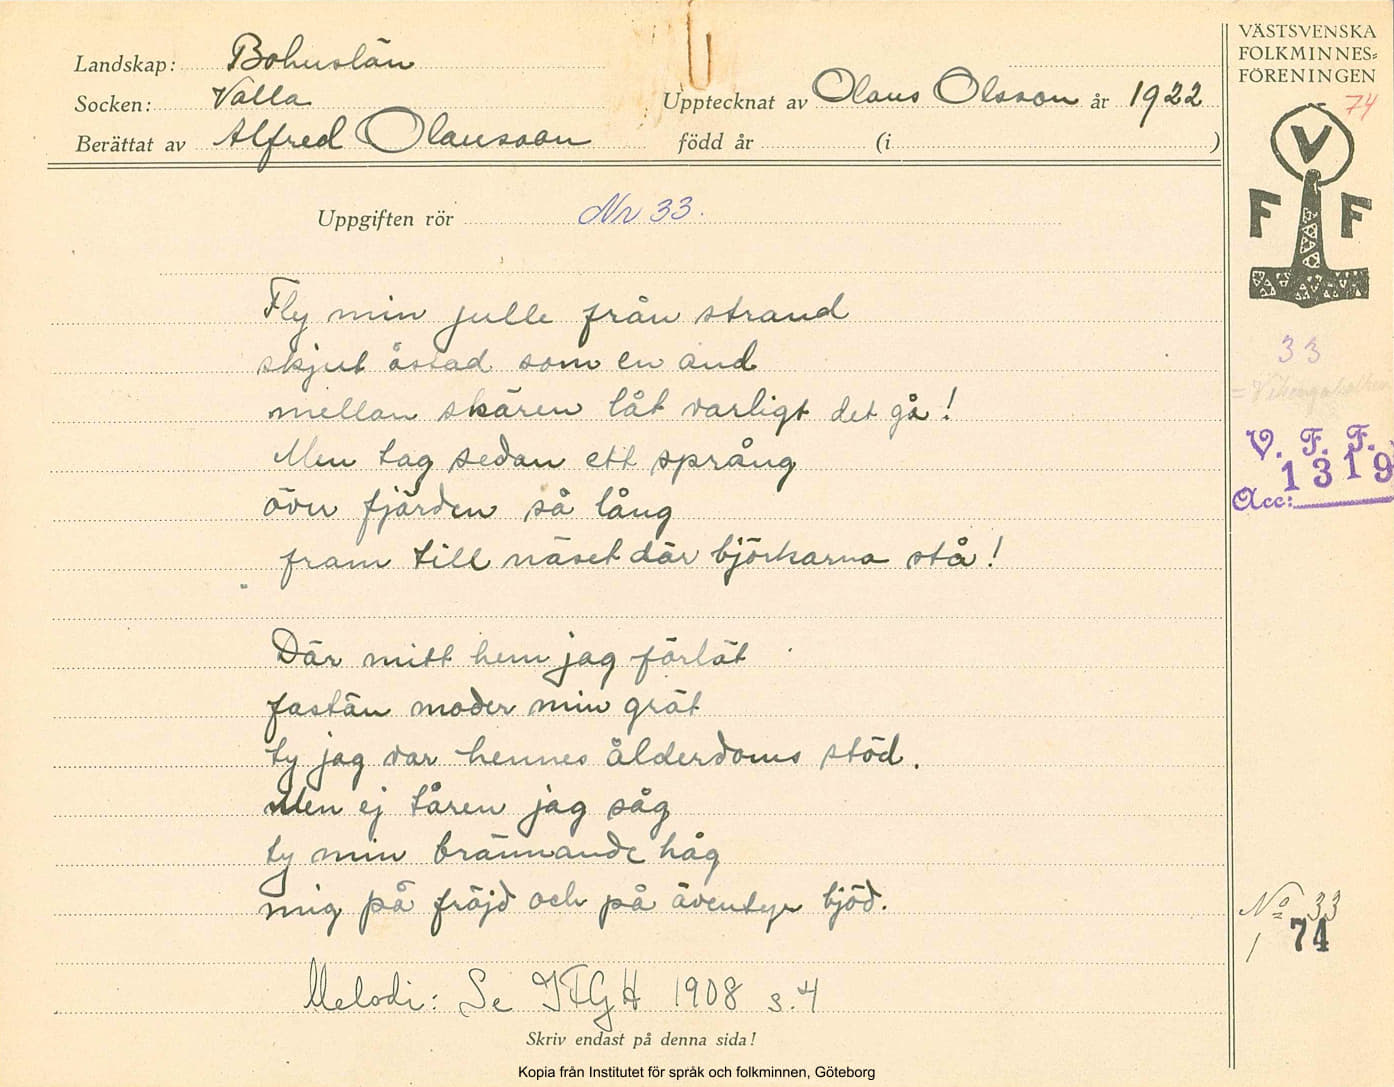 Landskap: Bohuslän
Socken: Valla
Berättat av Alfred Olausson
Upptecknat av Olaus Olsson år 1922
född år (i )
VÄSTSVENSKA
FOLKMINNES=
FÖRENINGEN
74
V
F F
Uppgiften rör Nr 33.
Fly min julle från strand
skjut åstad som en and
mellan skären låt varligt det gå!
Men tag sedan ett språng
över fjärden så lång
fram till näset där björkarna stå!
Där mitt hem jag förlät
fastän moder min grät
ty jag var hennes ålderdoms stöd.
Men ej tåren jag såg
ty min brännande håg
mig på fröjd och på äventyr bjöd.
Melodi: Se 1908 s. 4
33
V. F. F.
1319
Acc:
No 33
1 74
Skriv endast på denna sida!
Kopia från Institutet för språk och folkminnen, Göteborg